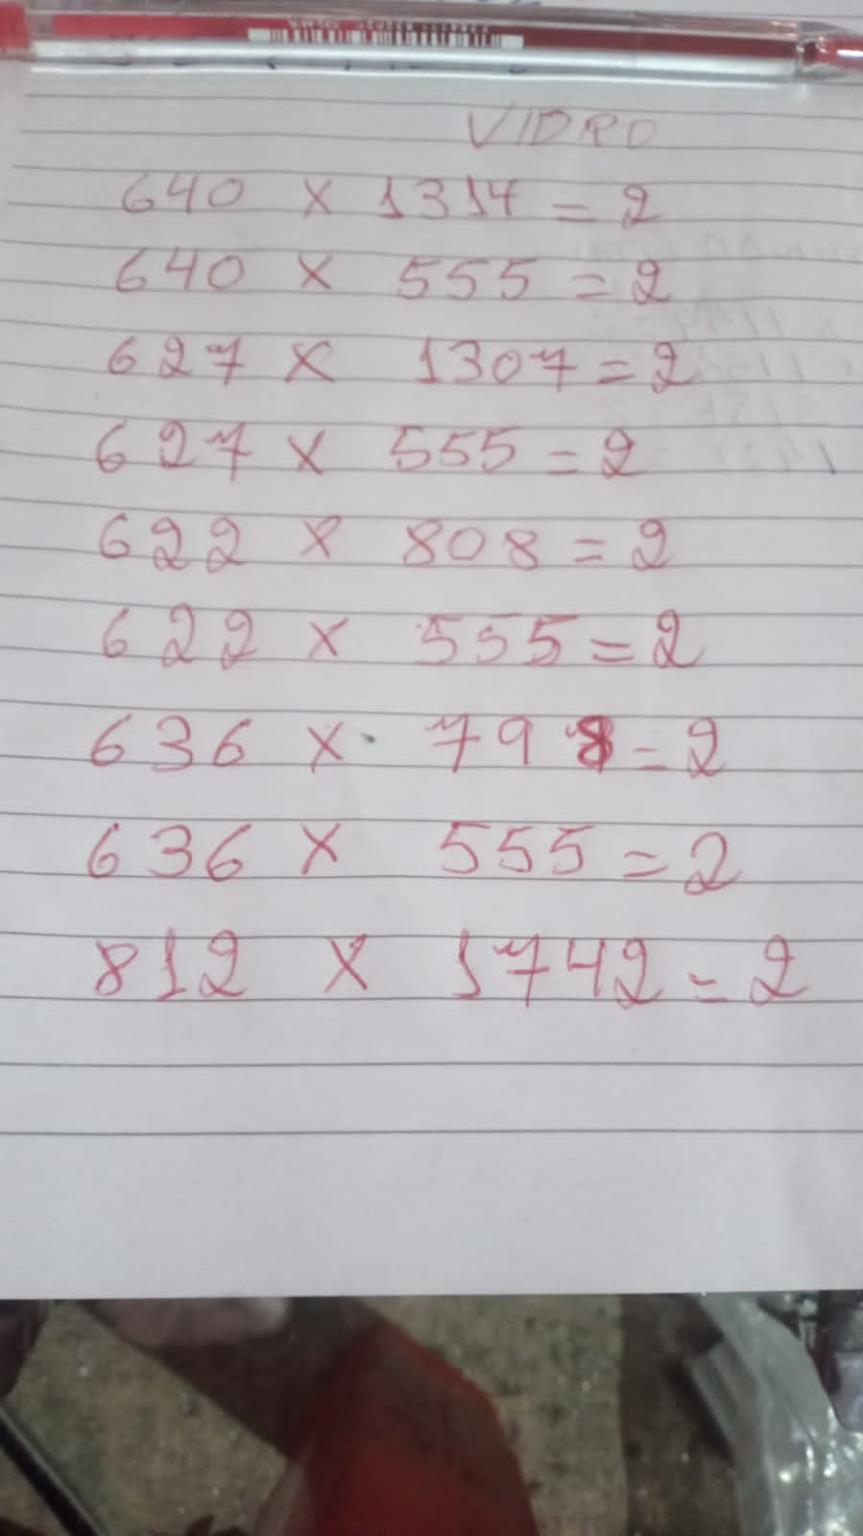 VIDRO
640 x 1314 = 2
640 x 555 = 2
627 x 1307 = 2
627 x 555 = 2
622 x 808 = 2
622 x 555 = 2
636 x 798 = 2
636 x 555 = 2
812 x 1742 = 2